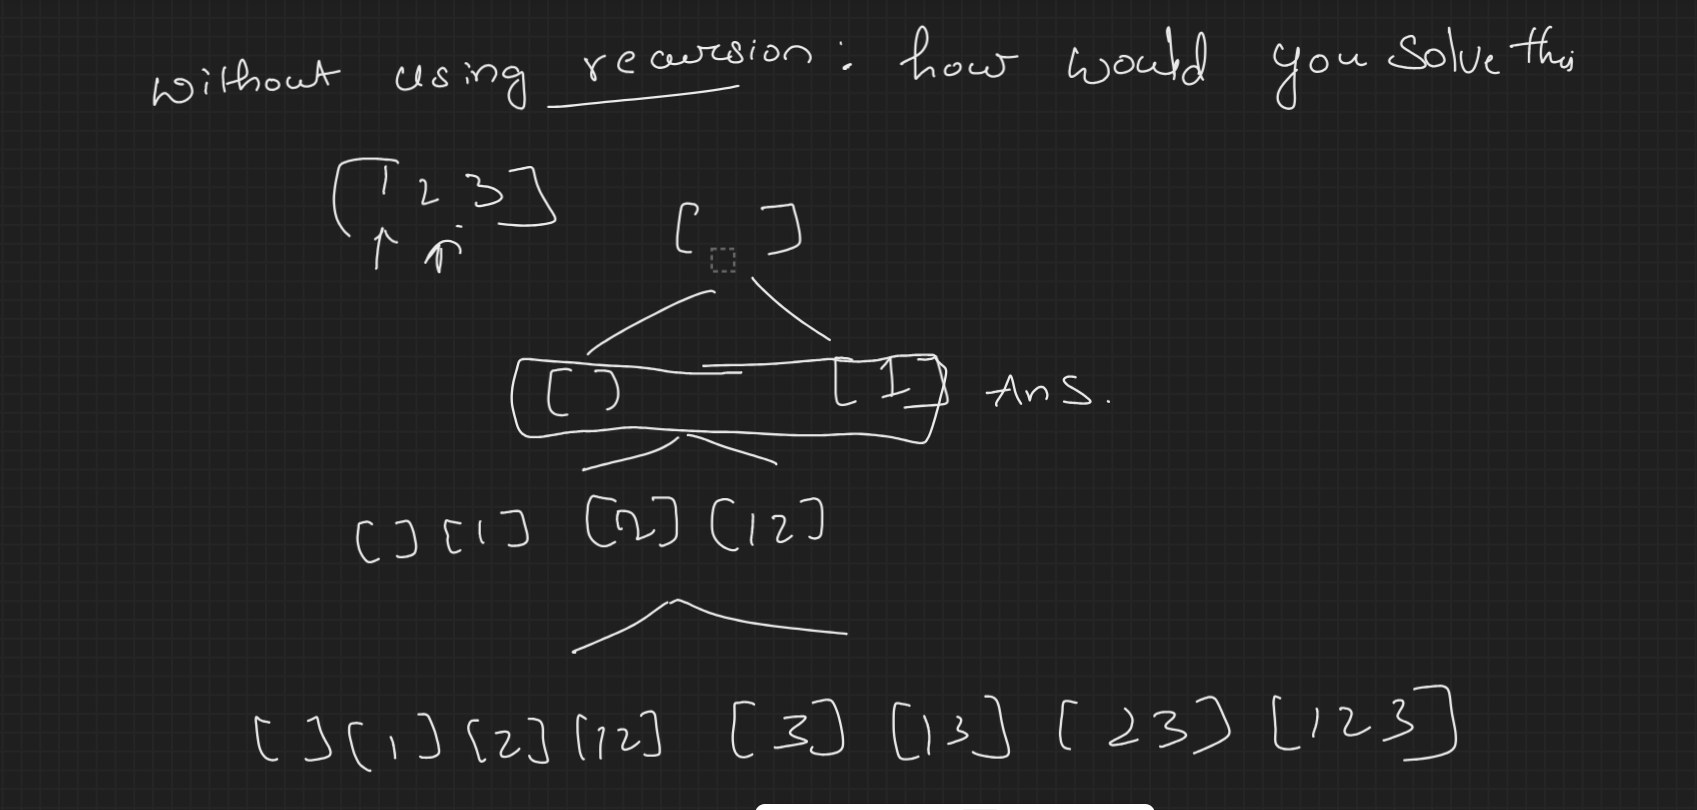 without using recursion: how would you solve this
[1 2 3]
[ ]
[ ] [1] Ans.
[ ] [1] [2] [12]
[ ] [1] [2] [12] [3] [13] [23] [123]